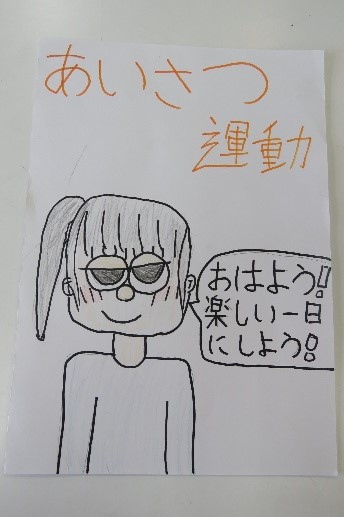 あいさつ
運動
おはよう!
楽しい一日
にしよう!